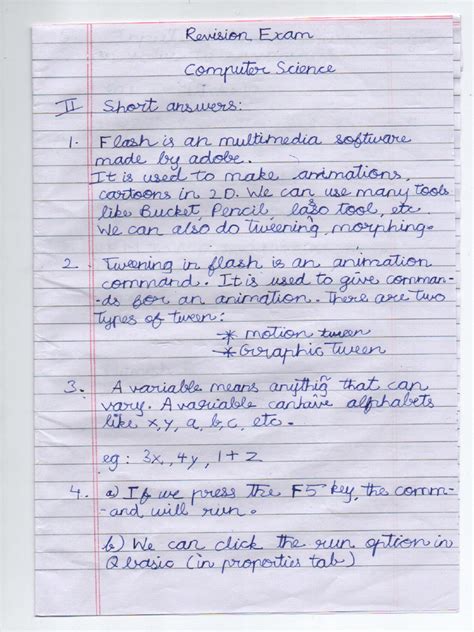 Revision Exam
Computer Science
II Short answers:
1. Flash is an multimedia software
made by adobe.
It is used to make animations,
cartoons in 2D. We can use many tools
like Bucket, Pencil, lasso tool, etc.
We can also do tweening, morphing.
2. Tweening in flash is an animation
command. It is used to give comman-
-ds for an animation. There are two
types of tween:
* motion tween
* Graphic Tween
3. A variable means anything that can
vary. A variable can have alphabets
like x, y, a, b, c, etc.
eg: 3x, 4y, 1+z
4. a) If we press the F5 key, the comm-
-and will run.
b) We can click the run option in
Q basic (in properties tab)